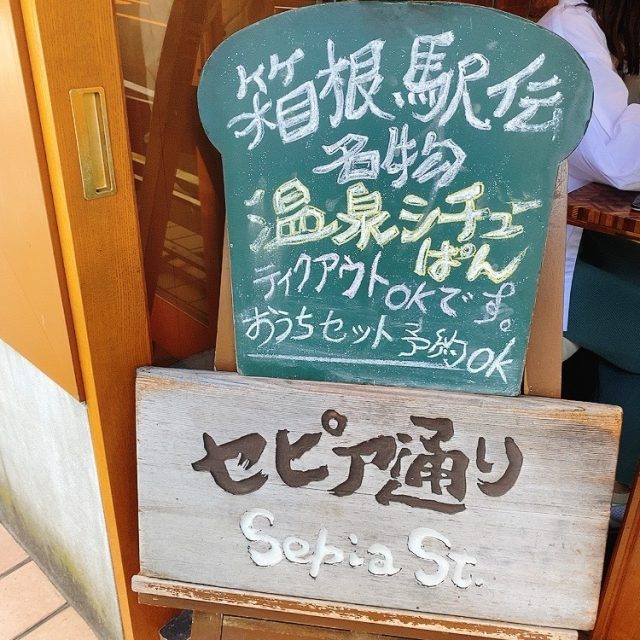 箱根駅伝
名物
温泉シチュー
ぱん
テイクアウト
OKです。
おうちセット 予約OK
セピア通り
Sepia St.